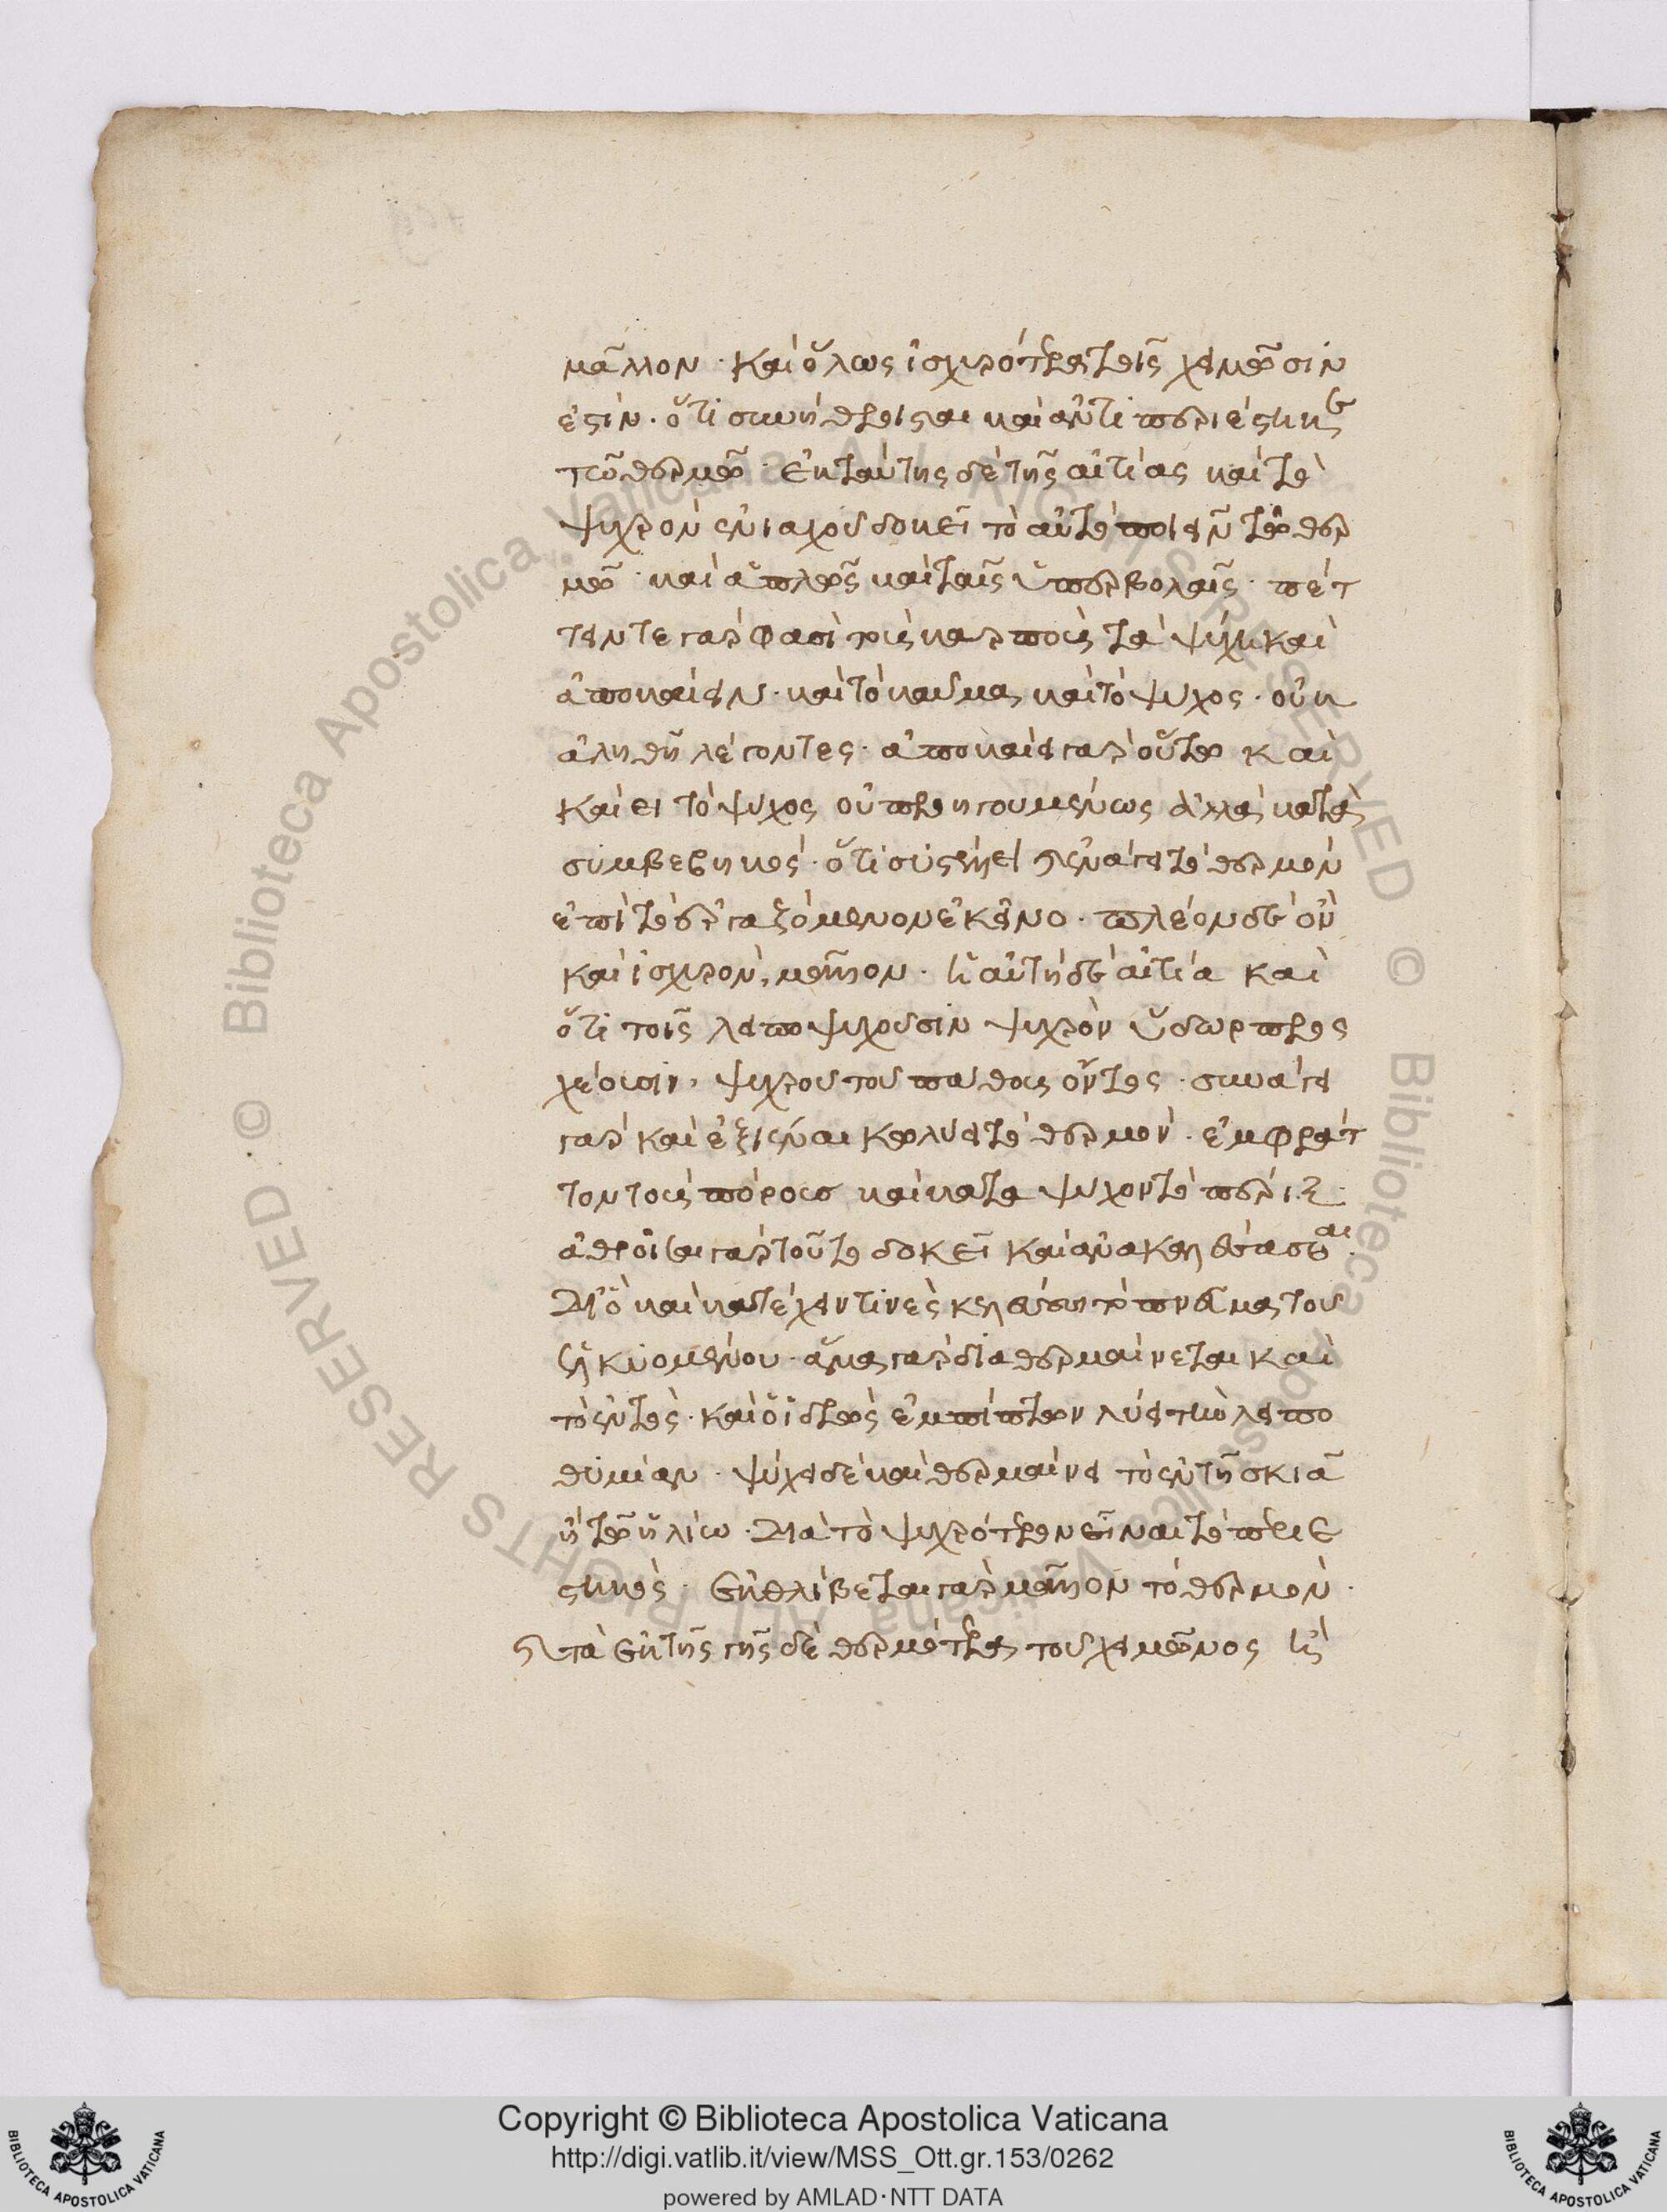 μᾶλλον· καὶ ὅλως ἰσχυρότεραι τοῖς χειμῶσιν
ἐστίν· ὅτι συνήθροισται καὶ ἀντιπεριέστηκε
τῶ θερμῶ· ἐκ ταύτης δὲ τῆς αἰτίας καὶ τὸ
ψυχρὸν ἐνιαχοῦ δοκεῖ τὸ αὐτὸ ποιεῖν τῶ θερ
μῶ· καὶ ἁπλῶς καὶ ταῖς ὑπερβολαῖς· πέτ
τειν τε γάρ φασὶ τοὺς καρποὺς τὰ ψύχη καὶ
ἀποκαίειν· καὶ τὸ καῦμα, καὶ τὸ ψύχος· οὐκ
ἀληθῆ λέγοντες· ἀποκαίει γὰρ οὕτω καὶ
καίει τὸ ψύχος οὐ προηγουμένως ἀλλὰ κατὰ
συμβεβηκός· ὅτι συστέλλει καὶ συνάγει τὸ θερμὸν
ἐπὶ τὸ ἐργαζόμενον ἐκεῖνο· πλέον δὲ ὂν
καὶ ἰσχυρὸν μᾶλλον· ἡ αὐτὴ δὲ αἰτία καὶ
ὅτι τοῖς λειποψυχοῦσιν ψυχρὸν ὕδωρ προσ
χέουσιν, ψυχροῦ τοῦ πάθους ὄντος· συνάγει
γὰρ καὶ ἐξιέναι κωλύει τὸ θερμόν· ἐμφράτ
τον τοὺς πόρους καὶ καταψῦχον τὸ πέριξ·
ἀθροῖσαι γὰρ τοῦτο δοκεῖ καὶ ἀνακαλέσασθαι·
διὸ καὶ κατέχειν τινὲς κελεύουσι τὸ πνεῦμα τοῦ
ἑλκυομένου· ἅμα γὰρ διαθερμαίνεται καὶ
τὸ ἐντός· καὶ ὁ ἱδρὼς ἐμπίπτων λύει τὴν λειπο
θυμίαν· ψύχει δὲ καὶ θερμαίνει τὸ ἐν τῆ σκιᾶ
ἢ τῶ ἡλίω· διὰ τὸ ψυχρότερον εἶναι τὸ περιε
στηκός· ἐκθλίβεται γὰρ μᾶλλον τὸ θερμόν·
καὶ τὰ ἐκ τῆς γῆς δὲ θερμότερα τοῦ χειμῶνος ἢ